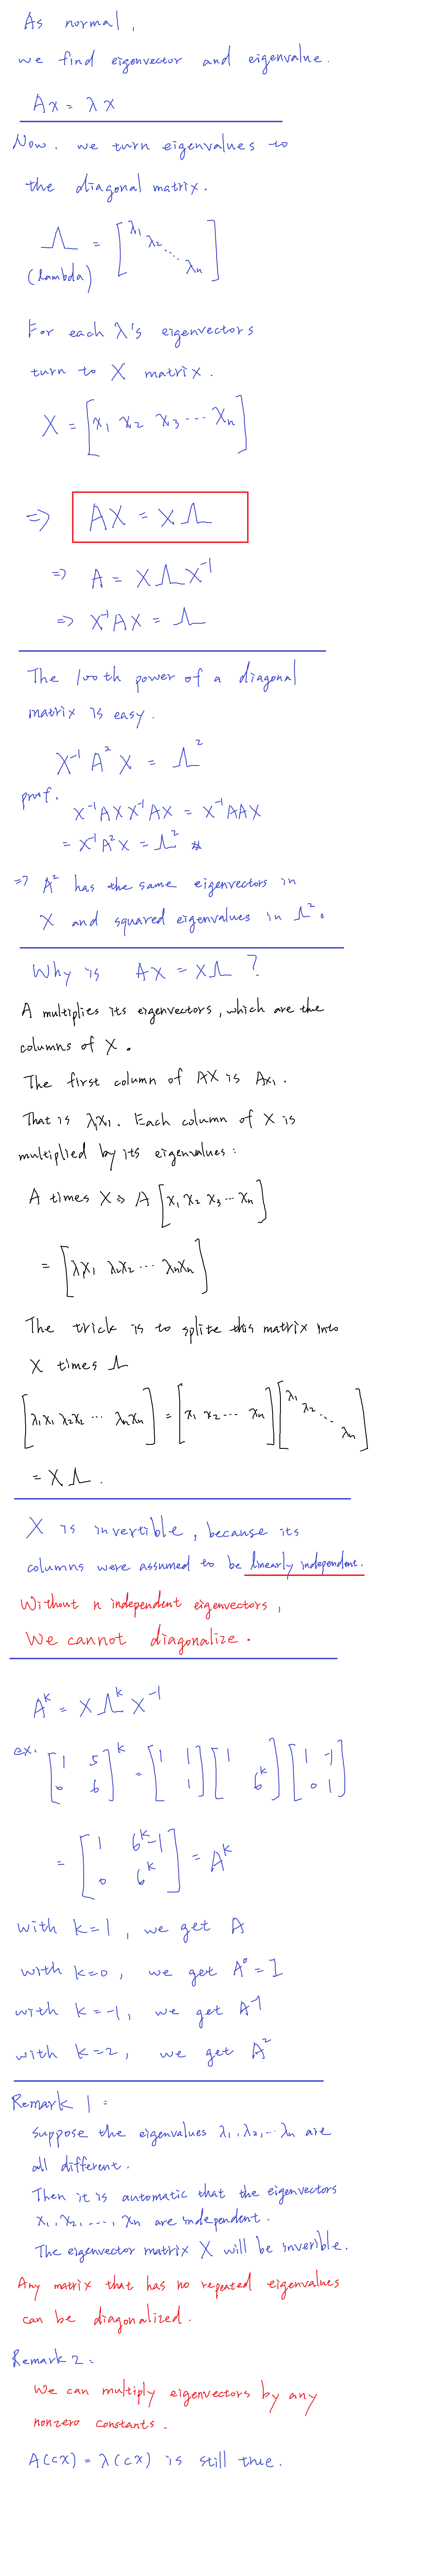 As normal,
we find eigenvector and eigenvalue.
Ax = λx
Now. we turn eigenvalues to
the diagonal matrix.
Λ = [λ1 λ2 ⋱ λn]
(lambda)
For each λ's eigenvectors
turn to X matrix.
X = [x1 x2 x3 ⋯ xn]
=> AX = XΛ
=> A = XΛX⁻¹
=> X⁻¹AX = Λ
The 100th power of a diagonal
matrix is easy.
X⁻¹ A² X = Λ²
proof. X⁻¹AXX⁻¹AX = X⁻¹AAX
= X⁻¹A²X = Λ² #
=> A² has the same eigenvectors in
X and squared eigenvalues in Λ².
Why is AX = XΛ ?
A multiplies its eigenvectors, which are the
columns of X.
The first column of AX is Ax1.
That is λ1x1. Each column of X is
multiplied by its eigenvalues:
A times X => A [x1 x2 x3 ⋯ xn]
= [λ1x1 λ2x2 ⋯ λnxn]
The trick is to splite this matrix into
X times Λ
[λ1x1 λ2x2 ⋯ λnxn] = [x1 x2 ⋯ xn] [λ1 λ2 ⋱ λn]
= XΛ.
X is invertible, because its
columns were assumed to be linearly independent.
Without n independent eigenvectors,
We cannot diagonalize.
Aᵏ = XΛᵏX⁻¹
ex. [1 5; 0 6]ᵏ = [1 1; 1] [1; 6ᵏ] [1 -1; 0 1]
= [1 6ᵏ-1; 0 6ᵏ] = Aᵏ
with k=1, we get A
with k=0, we get A⁰ = I
with k=-1, we get A⁻¹
with k=2, we get A²
Remark 1 :
suppose the eigenvalues λ1, λ2, ⋯ λn are
all different.
Then it is automatic that the eigenvectors
x1, x2, ⋯, xn are independent.
The eigenvector matrix X will be inverible.
Any matrix that has no repeated eigenvalues
can be diagonalized.
Remark 2 :
We can multiply eigenvectors by any
nonzero constants.
A(cx) = λ(cx) is still true.